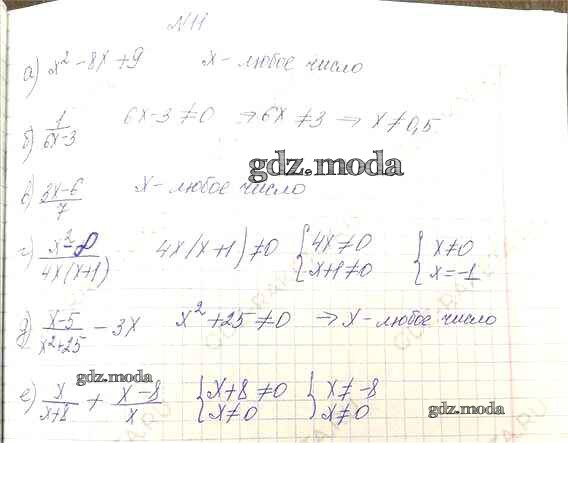 №11
а) x² - 8x + 9 x - любое число
б) 1/(6x-3) 6x-3 ≠ 0 ⇒ 6x ≠ 3 ⇒ x ≠ 0,5
gdz.moda
в) (3x-6)/7 x - любое число
г) (x²-8)/(4x(x+1)) 4x(x+1) ≠ 0 { 4x ≠ 0 { x ≠ 0
x+1 ≠ 0 x = -1
д) (x-5)/(x²+25) - 3x x² + 25 ≠ 0 ⇒ x - любое число
gdz.moda
е) x/(x+8) + (x-8)/x { x+8 ≠ 0 { x ≠ -8
x ≠ 0 x ≠ 0
gdz.moda